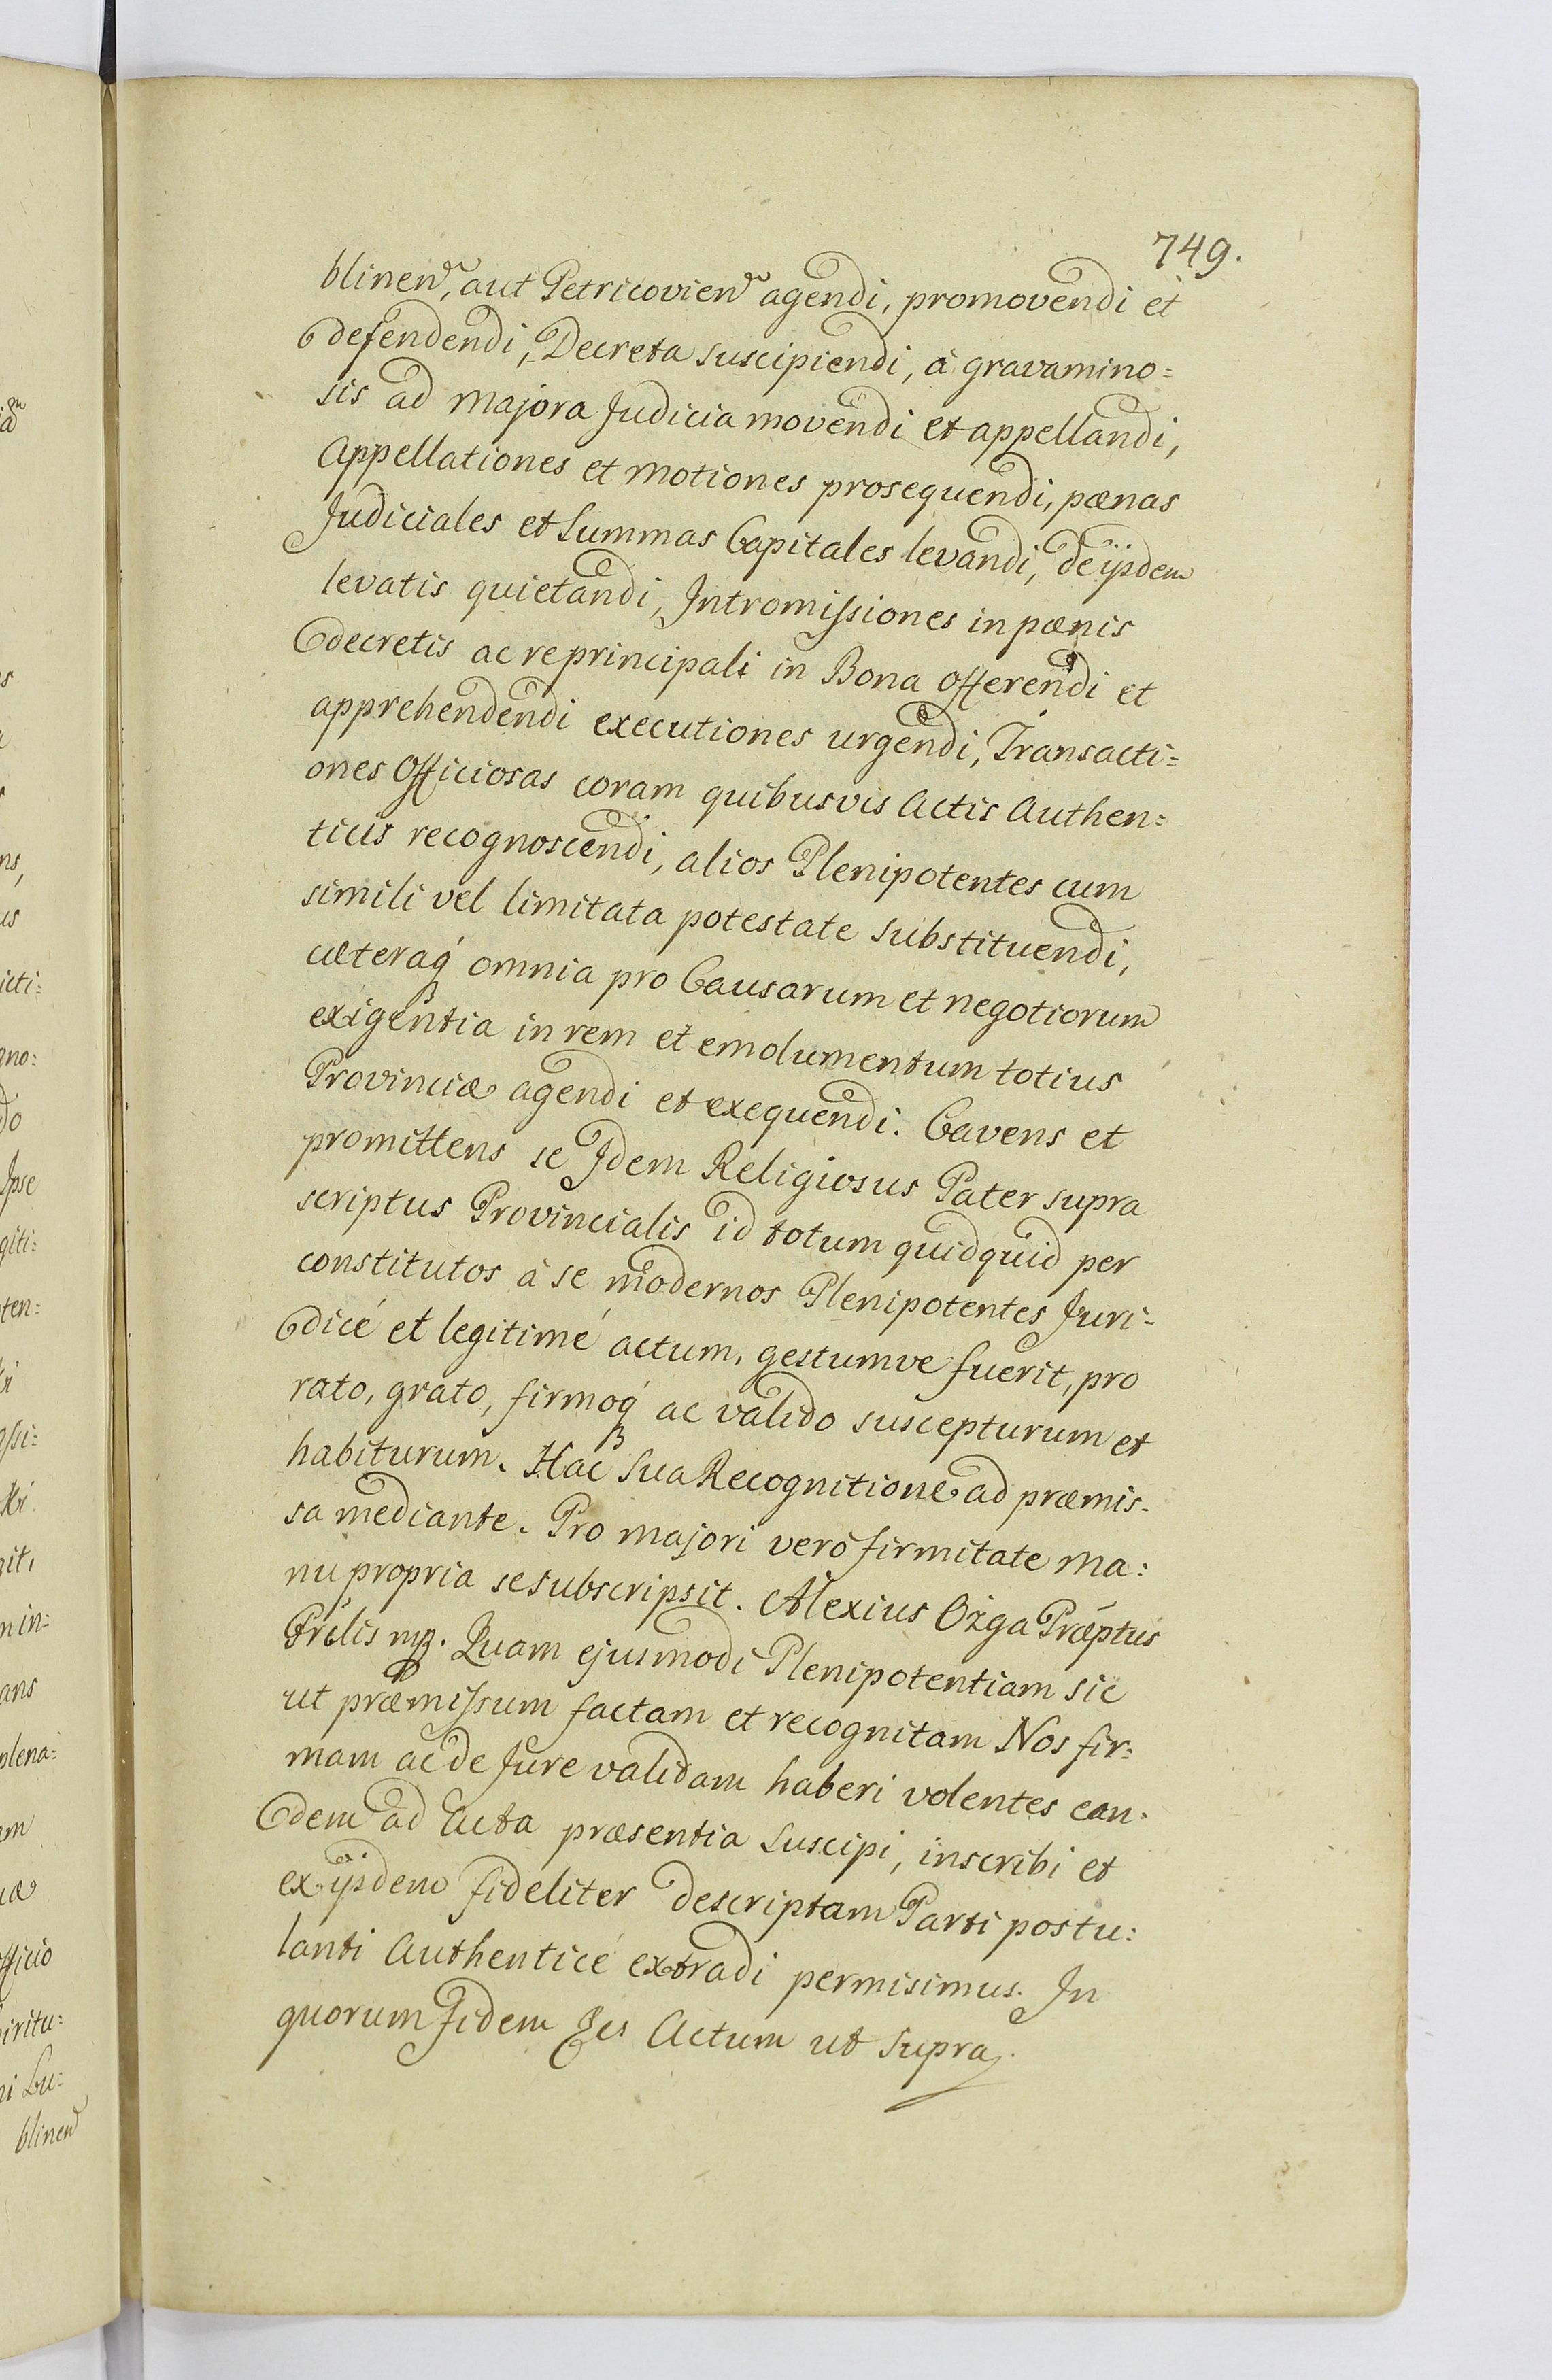 749.
blinen, aut Petricovien agendi, promovendi et
defendendi, Decreta suscipiendi, à gravamino=
sis ad majora Judicia movendi et appellandi,
Appellationes et motiones prosequendi, pænas
Judiciales et Summas Capitales levandi, de ijsdem
levatis quietandi, Intromissiones in pænis
decretis ac re principali in Bona offerendi et
apprehendendi executiones urgendi, Transacti=
ones Officiosas coram quibusvis Actis Authen=
ticis recognoscendi, alios Plenipotentes cum
simili vel limitata potestate substituendi,
cæteraq́ omnia pro Causarum et negotiorum
exigentia in rem et emolumentum totius
Provinciæ agendi et exequendi. Cavens et
promittens se Idem Religiosus Pater supra
scriptus Provincialis id totum quidquid per
constitutos à se modernos Plenipotentes Juri-
dicé et legitimé actum, gestumve fuerit, pro
rato, grato, firmoq́ ac valido suscepturum et
habiturum. Hac sua Recognitione ad præmis-
sa mediante. Pro majori veró firmitate ma:
nu propria se subscripsit. Alexius Ożga Præptus
Prĺlis mp. Quam ejusmodi Plenipotentiam sic
ut præmissum factam et recognitam Nos fir:
mam ac de Jure validam haberi volentes ean-
dem ad Acta præsentia suscipi, inscribi et
ex ijsdem fideliter descriptam Parti postu:
lanti Authenticé extradi permisimus. In
quorum fidem &c Actum ut supra.
ict:
gno:
do
Ipse
giti:
ten:
min:
ans
plena:
officio
piritu:
ni Lu:
blinen